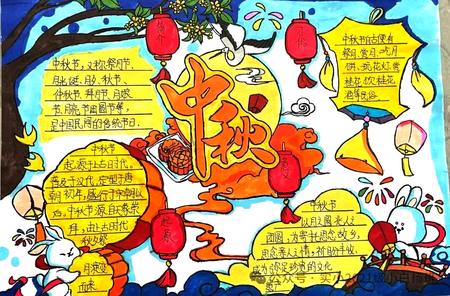 中秋节，又称祭月节、
月光诞、月夕、秋节、
仲秋节、拜月节、月娘
节、月亮节、团圆节等，
是中国民间的传统节日。
中秋
中秋节自古便有
祭月、赏月、吃月
饼、玩花灯、赏
桂花、饮桂花
酒等民俗
中秋节
起源于上古时代，
普及于汉代，定型于唐
朝初年，盛行于宋朝以
后。中秋节源自天象崇
拜，由上古时代
秋夕祭
月演变
而来
中秋节
以月之圆兆人之
团圆，为寄托思念故乡，
思念亲人之情，祈盼丰收，
成为弥足珍贵的文化
公众号·实小2021级小白鸽